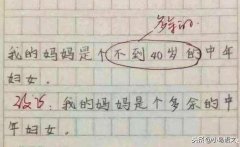 多余的
我的妈妈是个不到40岁的中年
妇女。
改过：我的妈妈是个多余的中
年妇女。
头条@小易语文